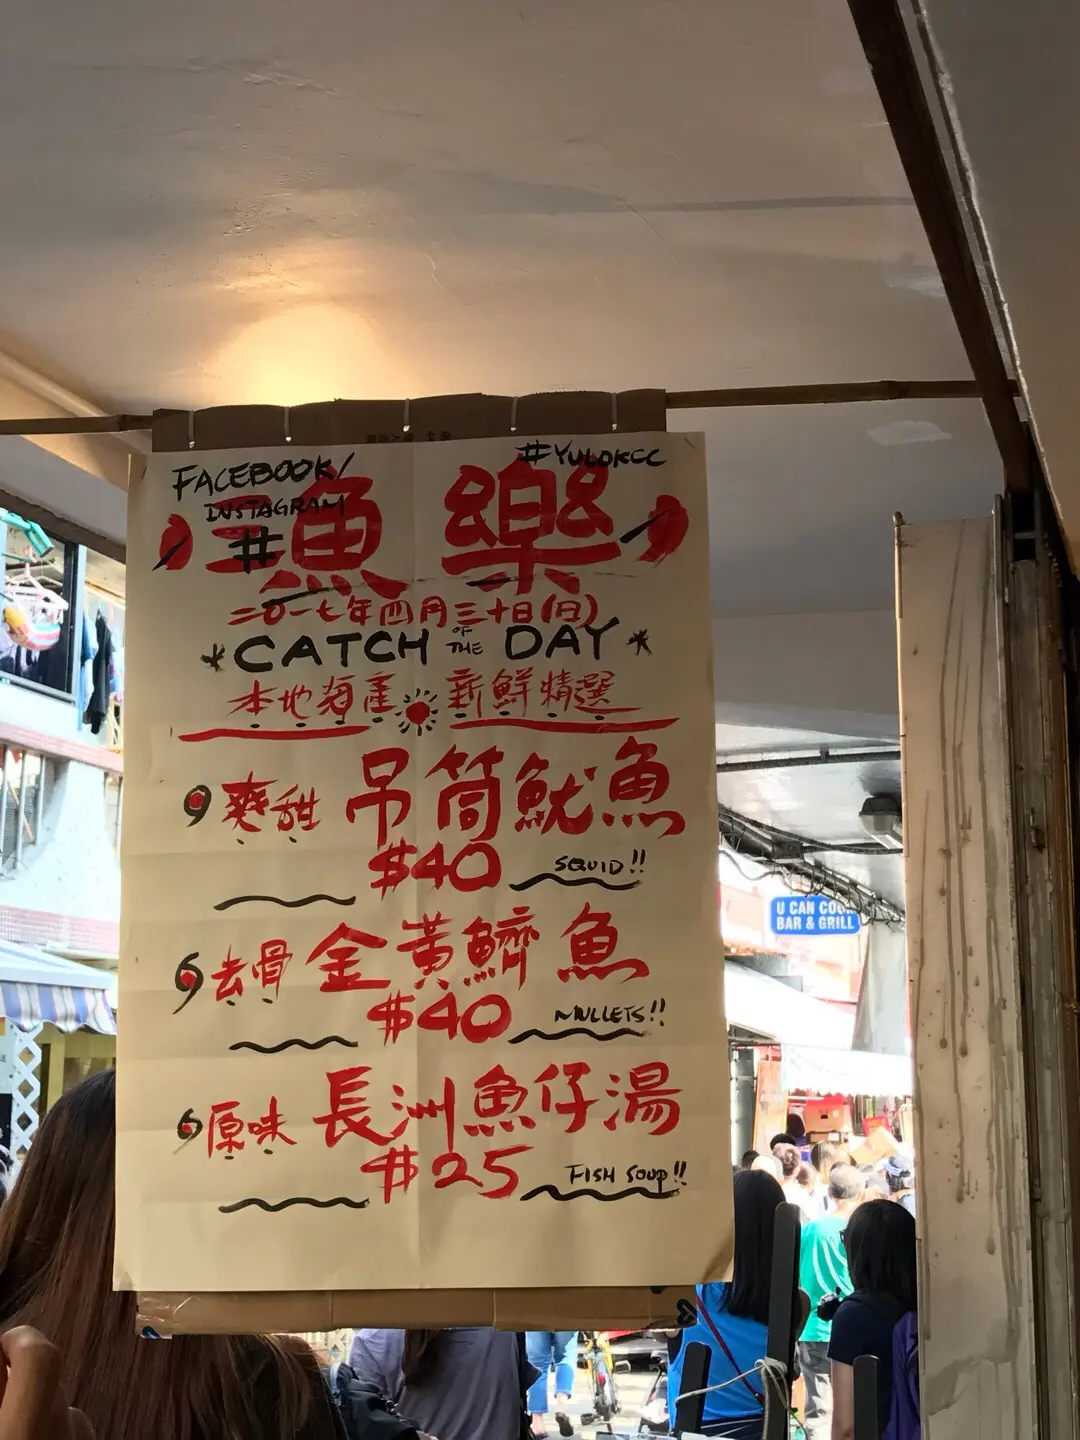 FACEBOOK/
INSTAGRAM
#
#YULOKCC
漁樂
二〇一七年四月三十日(日)
*CATCH OF THE DAY*
本地海產 新鮮精選
爽甜 吊筒魷魚
$40 SQUID!!
去骨 金黃鱭魚
$40 MULLETS!!
原味 長洲魚仔湯
$25 FISH SOUP!!
U CAN COOK
BAR & GRILL